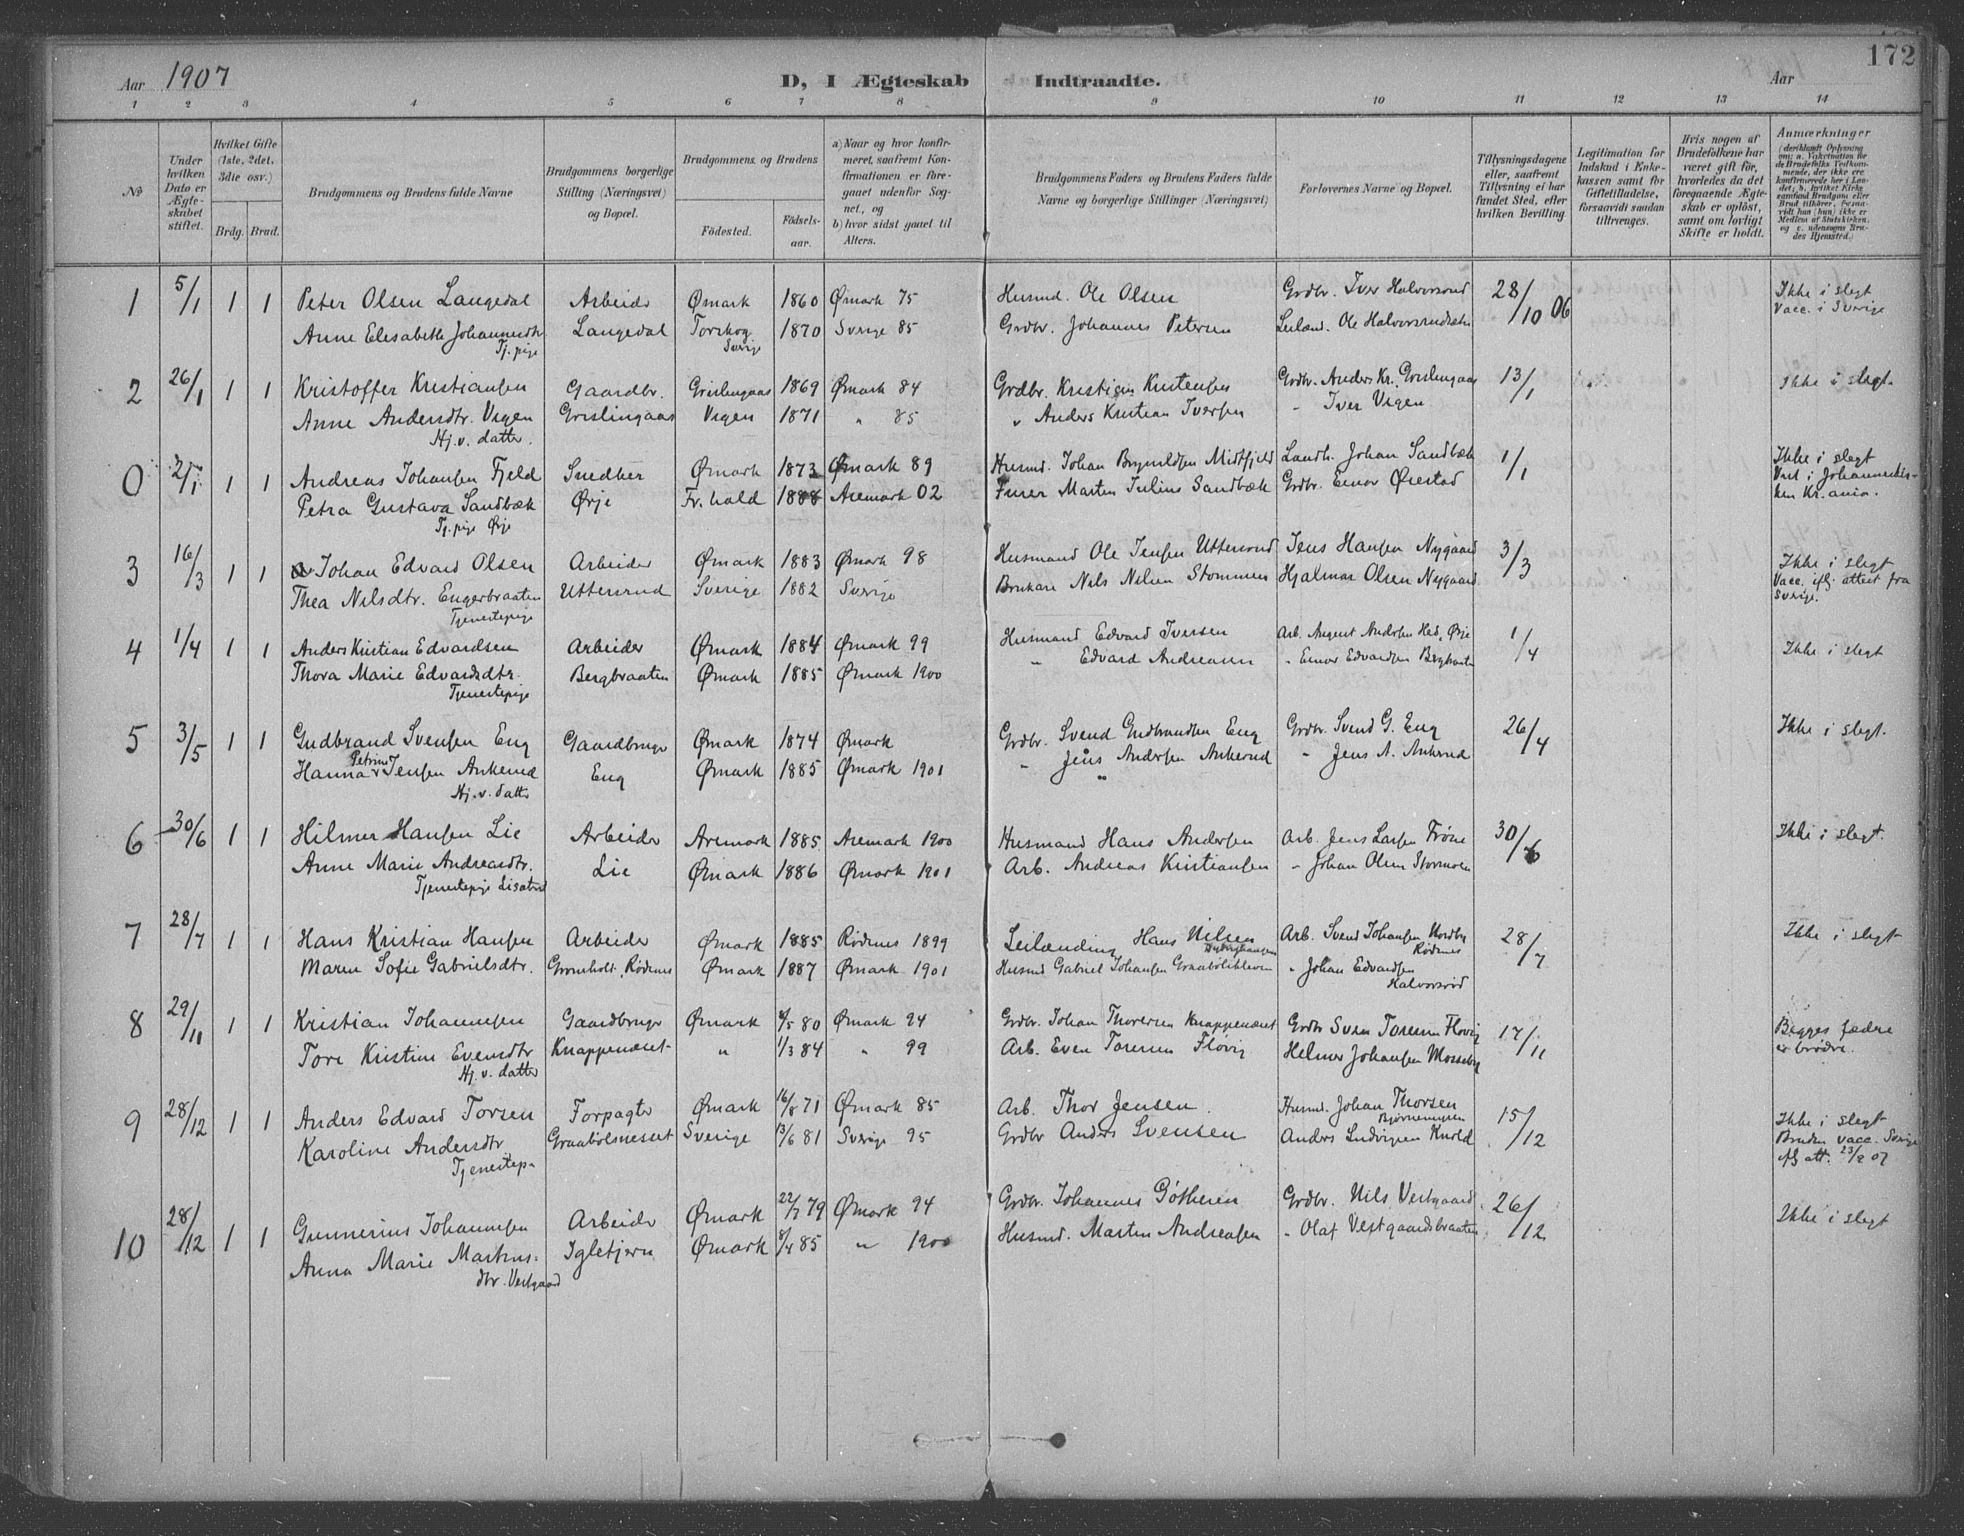 172
Aar 1907 D, I Ægteskab Indtraadte. Aar
1 2 3 4 5 6 7 8 9 10 11 12 13 14
No
Under hvilken Dato er Ægteskabet stiftet.
Hvilket Gifte (1ste, 2det, 3die osv.)
Brdg. Brud.
Brudgommens og Brudens fulde Navne
Brudgommens borgerlige Stilling (Næringsvei) og Bopæl.
Brudgommens og Brudens
Fødested.
Fødselsaar.
a) Naar og hvor konfirmeret, saafremt Konfirmationen er foregaaet udenfor Sognet, og
b) hvor sidst gaaet til Alters.
Brudgommens Faders og Brudens Faders fulde Navne og borgerlige Stillinger (Næringsvei)
Forlovernes Navne og Bopæl.
Tillysningsdagene eller, saafremt Tillysning ei har fundet Sted, efter hvilken Bevilling
Legitimation for Indskud i Enkekassen samt for Giftetilladelse, forsaavidt saadan tiltrænges.
Hvis nogen af Brudefolkene har været gift før, hvorledes da det foregaaende Ægteskab er opløst, samt om lovligt Skifte er holdt.
Anmærkninger
1 5/1 1 1 Peter Olsen Langedal Arbeider Ømark 1860 Ømark 75 Husmd. Ole Olsen Grdbr. Iver Halvorsrud 28/10 06 Ikke i slegt
Anne Elisabeth Johannesdtr Langedal Torskog 1870 Sverige 85 Grdbr. Johannes Petersen Leilænd. Ole Halvorsrudsætr Vacc. i Sverige
Tj.pige Sverige
2 26/1 1 1 Kristoffer Kristiansen Gaardbr. Grislengaas 1869 Ømark 84 Grdbr. Kristian Kristensen Grdbr. Anders Kr. Grislengaas 13/1 Ikke i slegt.
Anne Andersdtr. Vigen Grislingaas Vigen 1871 " 85 " Anders Kristian Iversen " Iver Vigen
Hj.v. datter.
0 2/1 1 1 Andreas Johansen Fjeld Snedker Ømark 1873 Ømark 89 Husmd. Johan Brynildsen Midtfjeld Landh. Johan Sandbæk 1/1 Ikke i slegt
Petra Gustava Sandbæk Ørje Fr.hald 1888 Aremark 02 Furer Martin Julius Sandbæk Grdbr. Einar Ørestad Viet i Johanneskirken Kr.ania.
Tj.pige Ørje
3 16/3 1 1 Johan Edvard Olsen Arbeider Ømark 1883 Ømark 98 Husmand Ole Jensen Uttersrud Jens Hansen Nygaard 3/3 Ikke i slegt
Thea Nilsdtr. Engerbraaten Uttersrud Sverige 1882 Sverige Brukare Nils Nilsen Stommen Hjalmar Olsen Nygaard Vacc. iflg. attest fra
Tjenestepige Sverige.
4 1/4 1 1 Anders Kristian Edvardsen Arbeider Ømark 1884 Ømark 99 Husmand Edvard Iversen Arb. August Andersen Hed, Ørje 1/4 Ikke i slegt
Thora Marie Edvardsdtr. Bergbraaten Ømark 1885 Ømark 1900 " Edvard Andreasen " Einar Edvardsen Bergbraaten
Tjenestepige
5 3/5 1 1 Gudbrand Svensen Eng Gaardbruger Ømark 1874 Ømark Grdbr. Svend Gudbrandsen Eng Grdbr. Svend G. Eng 26/4 Ikke i slegt.
Hanna Petrine Jensen Ankerud Eng Ømark 1885 Ømark 1901 " Jens Andersen Ankerud " Jens A. Ankerud
Hj.v. datter
6 30/6 1 1 Hilmer Hansen Lie Arbeider Aremark 1885 Aremark 1900 Husmand Hans Andersen Arb. Jens Larsen 30/6 Ikke i slegt.
Anne Marie Andreasdtr. Lie Ømark 1886 Ømark 1901 Arb. Andreas Kristiansen " Johan Olsen Stormoen
Tjenestepige
7 28/7 1 1 Hans Kristian Hansen Arbeider Ømark 1885 Rødenes 1899 Leilænding Hans Nilsen Arb. Svend Johansen Nordby 28/7 Ikke i slegt
Rødenes
Maren Sofie Gabrielsdtr. Gromholt, Rødenes Ømark 1887 Ømark 1901 Husmd Gabriel Johansen Graabølkleven " Johan Edvardsen
Halvorsrød
8 29/11 1 1 Kristian Johannesen Gaardbruger Ømark 4/5 80 Ømark 94 Grdbr. Johan Thoresen Knappenæset Grdbr Sven Toresen Flovig 17/11 Begges fædre
Tore Kristine Evensdtr Knappenæset " 1/3 84 " 99 Arb. Even Toresen Flovig Helmer Johansen Mosseby er brødre.
Hj.v. datter
9 28/12 1 1 Anders Edvard Torsen Forpagter Ømark 16/8 71 Ømark 85 Arb. Thor Jensen. Husmd. Johan Thorsen 15/12 Ikke i slegt
Karoline Andersdtr Graabølsnesset Sverige 13/6 81 Sverige 95 Grdbr Anders Svensen Anders Ludvigsen Bruden vacc. Sverige
Tjenestep. iflg att. 23/2 07
10 28/12 1 1 Gunnerius Johannesen Arbeider Ømark 22/7 79 Ømark 94 Grdbr. Johannes Gøthesen Grdbr. Nils Vestgaard 26/12 Ikke i slegt
Anna Marie Martins- Igletjern Ømark 8/4 85 " 1900 Husmd. Martin Andreasen " Olaf Vestgaardsbraaten
dtr. Vestgaard